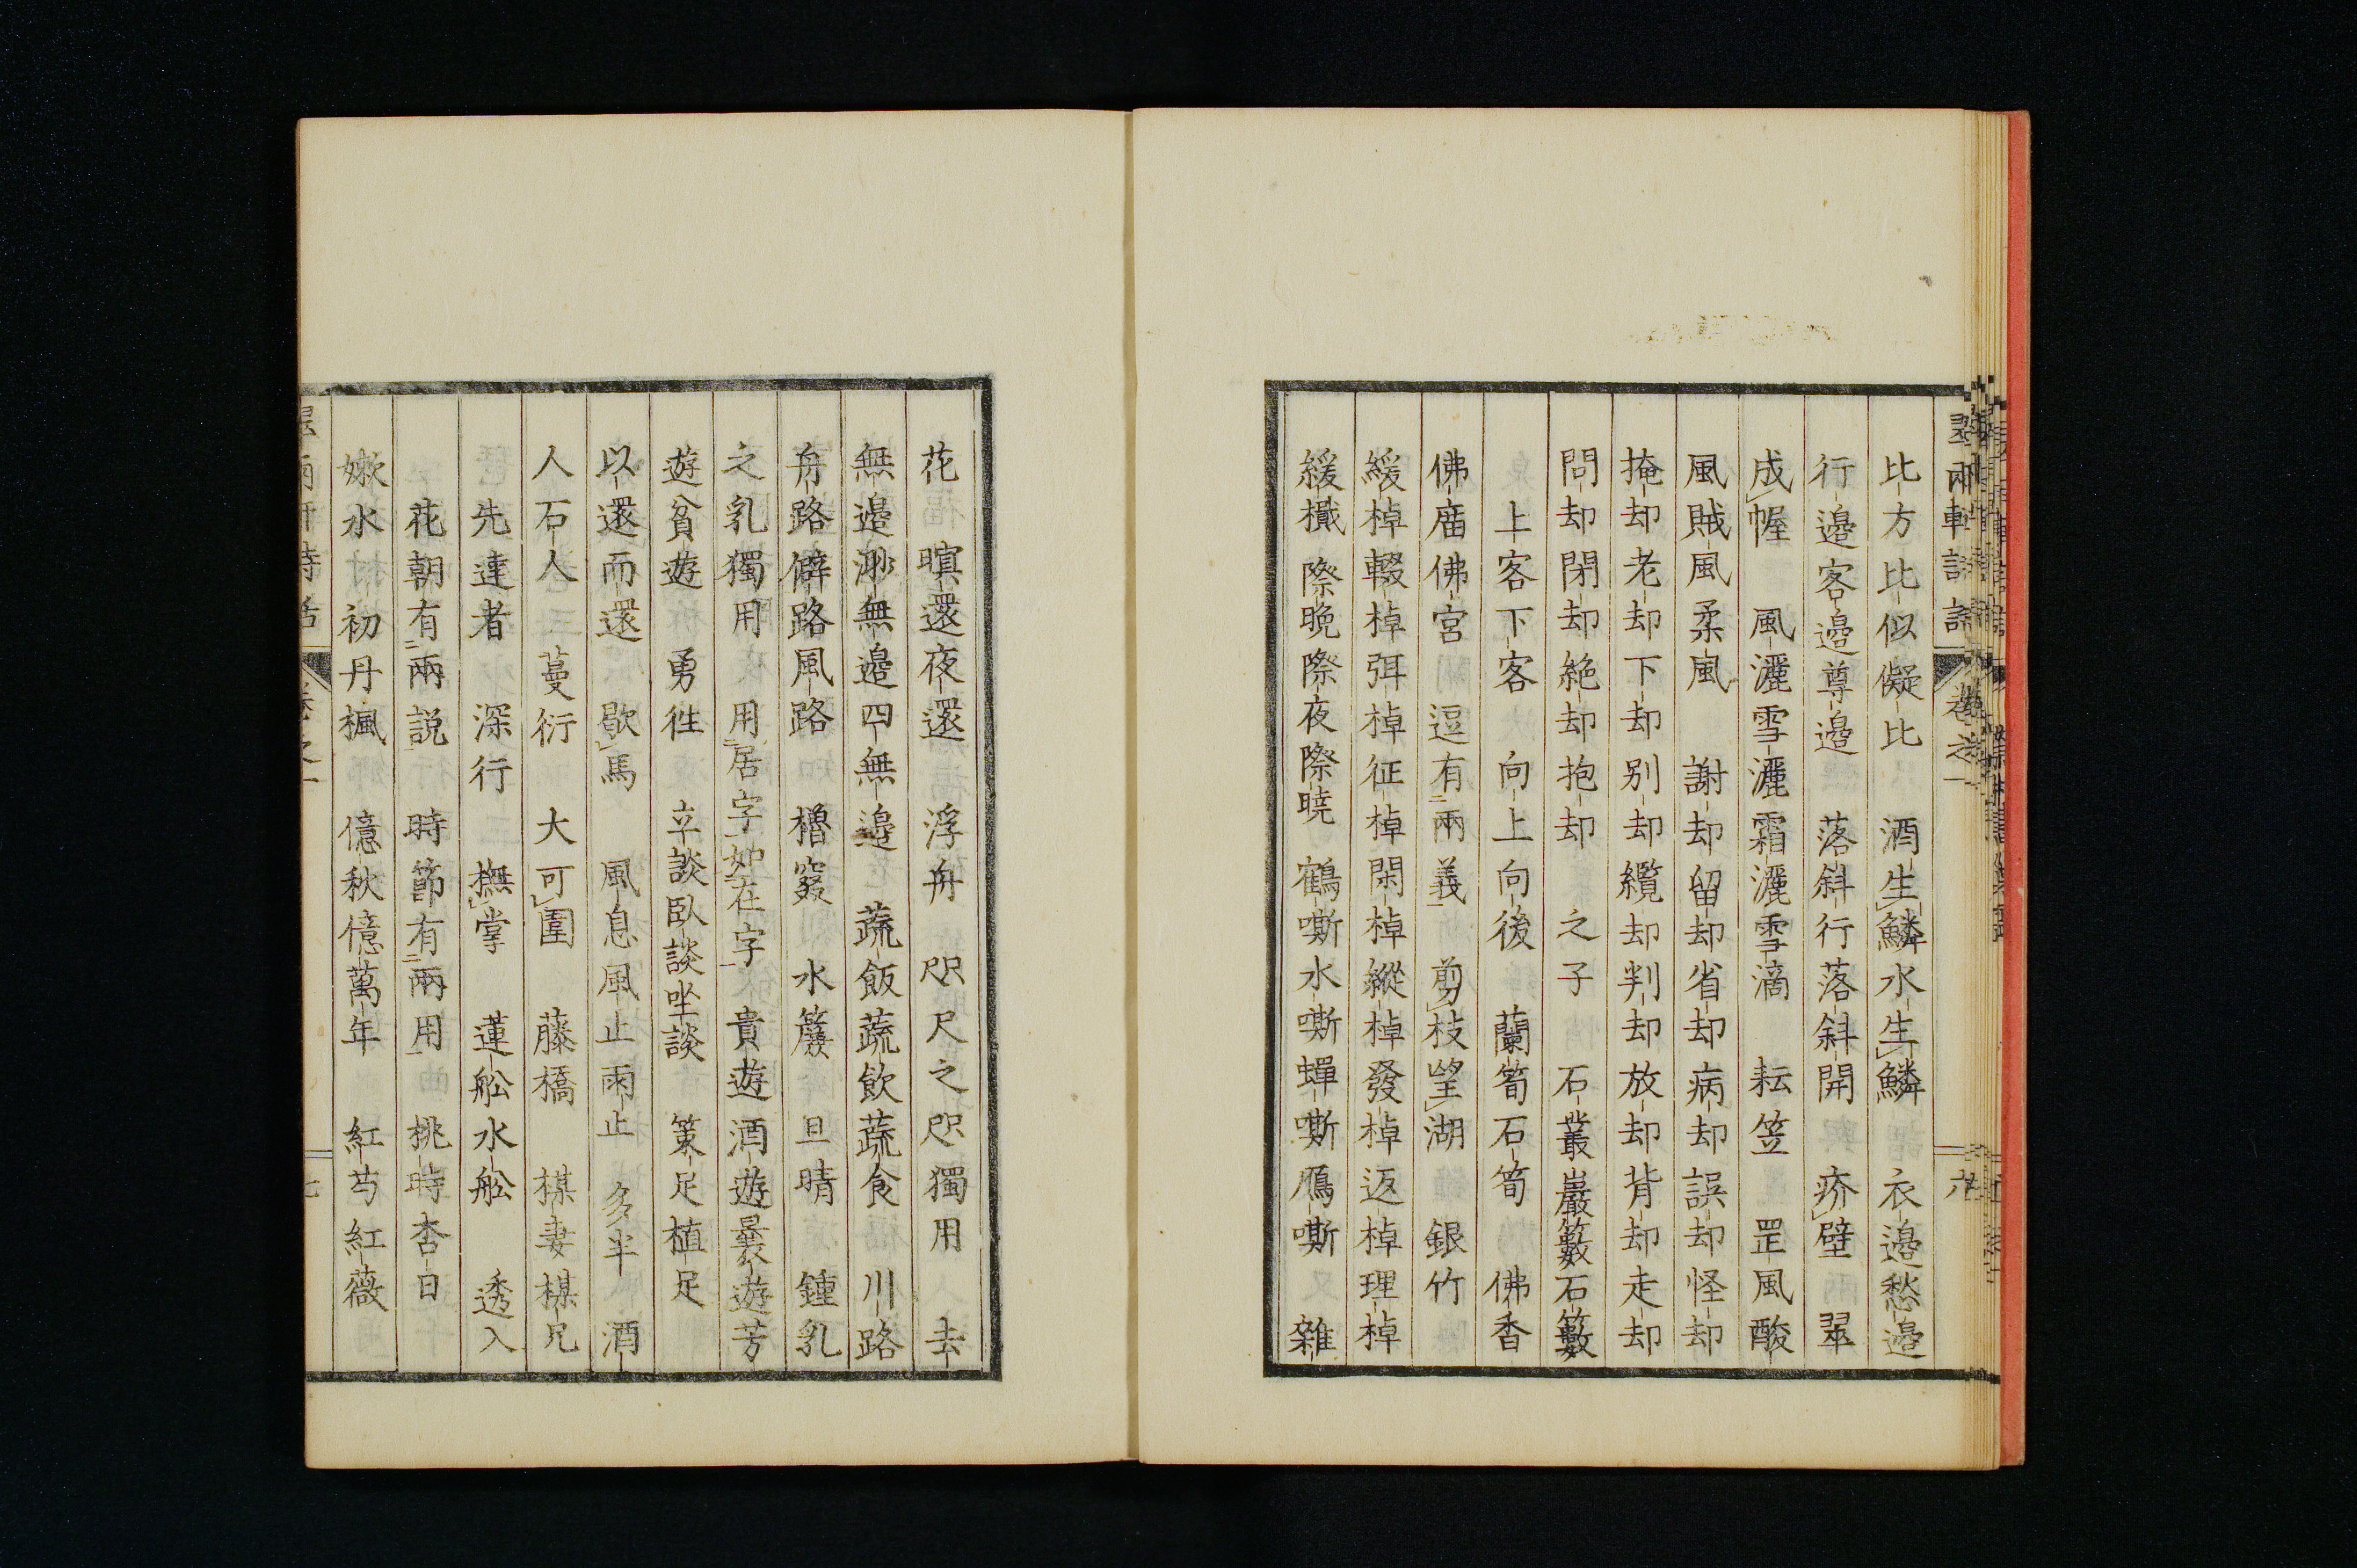 翠雨軒詩話 卷之一 六
比方比似儗比 酒生鱗水生鱗 衣邉愁邉
行邉客邉尊邉 落斜行落斜開 疥壁 翠
成幄 風灑雪灑霜灑雪滴 耘笠 罡風酸
風賊風柔風 謝却留却省却病却誤却怪却
掩却老却下却别却纜却判却放却背却走却
問却閉却絶却抱却 之子 石叢巖籔石籔
上客下客 向上向後 蘭筍石筍 佛香
佛庿佛宮 逗有二兩義一 剪枝望湖 銀竹
緩棹輟棹弭棹征棹閑棹縱棹發棹返棹理棹
緩檥 際晩際夜際曉 鶴嘶水嘶蟬嘶鴈嘶 雜
花 暝還夜還 浮舟 咫尺之咫獨用 去
無邉渺無邉四無邉 蔬飯蔬飲蔬食 川路
舟路僻路風路 櫓窽 水簺 旦晴 鍾乳
之乳獨用 用二居字一如二在字一 貴遊酒遊曩遊芳
遊貧遊 勇徃 立談臥談坐談 策足植足
以還而還 歇馬 風息風止雨止 多半 酒
人石人 蔓衍 大可圍 藤橋 楳妻楳兄
先達者 深行 撫掌 蓮舩水舩 透入
花朝有二兩説一 時節有二兩用一 桃時杏日
嫩水 初丹楓 億秋億萬年 紅芍紅薇